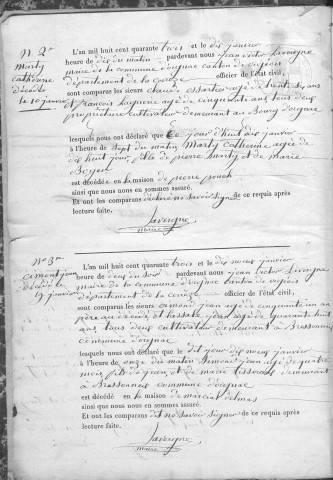 N. 2e
Marty
Catherine
Décédée
le 10 janvier
L'an mil huit cent quarante trois et le dix janvier
heure de dix du matin pardevant nous jean victor Laveigne
maire de la commune d'orgnac canton de vigeois
département de la Corrèze officier de l'état civil,
sont comparus les sieurs claude agé de trente six ans
françois agé de cinquante ans tous deux
propriétaire cultivateur demeurant au Bourg d'orgnac
lesquels nous ont déclaré que ce jour d'huit dix janvier
à l'heure de sept du matin Marty Catherine agée de
dix huit jours, fille de pierre Marty et de marie
Boyer
est décédée en la maison de pierre pouch
ainsi que nous nous en sommes assuré.
Et ont les comparants déclaré ne savoir signé de ce requis après
lecture faite.
Laveigne
maire
N. 3e
Cemond jean
décédé le
19 janvier
L'an mil huit cent quarante trois et le dix neuf janvier
heure de deux du soir pardevant nous jean victor Laveigne
maire de la commune d'orgnac canton de vigeois
département de la Corrèze officier de l'état civil,
sont comparus les sieurs Cemond jean agé de cinquante un an
père au décédé et Lassale jean agé de quarante huit
ans, tous deux cultivateur demeurant à Brassonneix
commune d'orgnac
lesquels nous ont déclaré que le dit jour dix neuf janvier
à l'heure de onze du matin Cemond jean agé de quatre
mois, fils de jean, et de marie demeurant
à Brassonneix commune d'orgnac
est décédé en la maison de marcial delmas
ainsi que nous nous en sommes assuré.
Et ont les comparants dit ne savoir signer de ce requis après
lecture faite.
Laveigne
maire